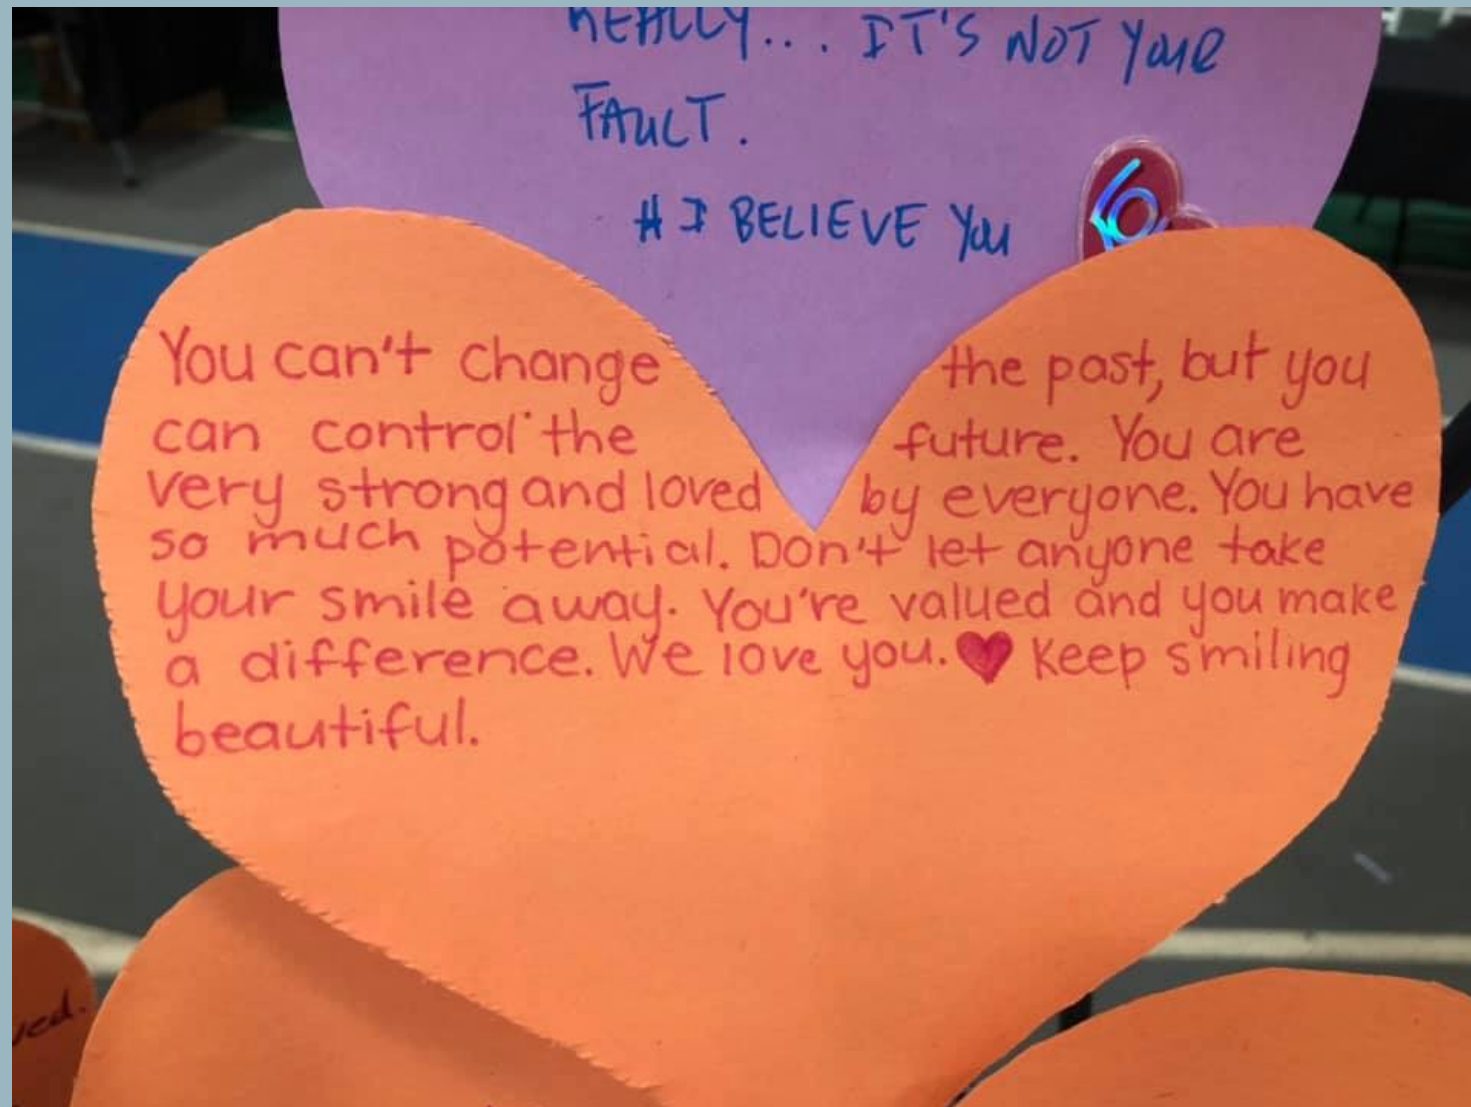 REALLY... IT'S NOT YOUR
FAULT.
# I BELIEVE YOU
You can't change the past, but you
can control the future. You are
very strong and loved by everyone. You have
so much potential. Don't let anyone take
your smile away. You're valued and you make
a difference. We love you. ♥ Keep smiling
beautiful.